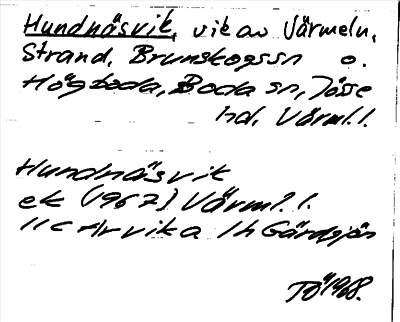 Hundnäsvik, vik av Värmeln,
Strand, Brunskogs sn o.
Högboda, Boda sn, Jösse
hd, Värml.l.
Hundnäsvik
ek (1967) Värml.l.
11c Arvika 1h Gärdsjön
TÖ 1968.